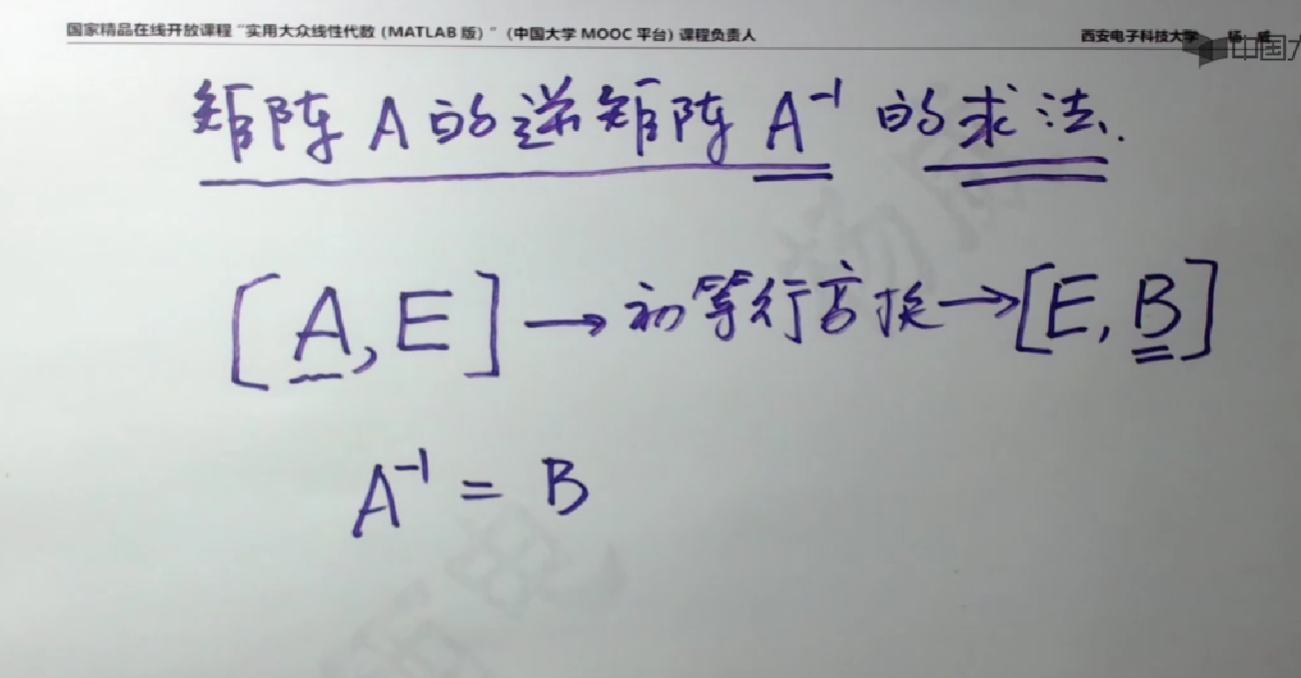 国家精品在线开放课程“实用大众线性代数（MATLAB 版）”（中国大学 MOOC 平台）课程负责人 西安电子科技大学 杨 威
中国大
矩阵 A 的逆矩阵 A⁻¹ 的求法.
[A, E] → 初等行变换 → [E, B]
A⁻¹ = B